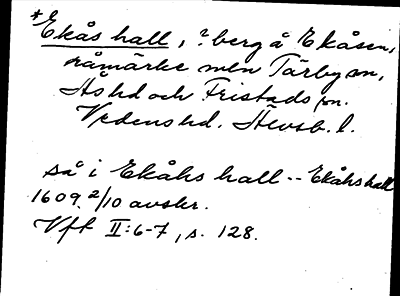 *Ekås hall, ? berg å Ekåsen,
råmärke mln Tärby sn,
Ås hd och Fristads sn.
Vedens hd. Älvsb. l.
så i Ekåhs hall -- Ekåhs hall
1609 2/10 avskr.
Vft II:6-7, s. 128.